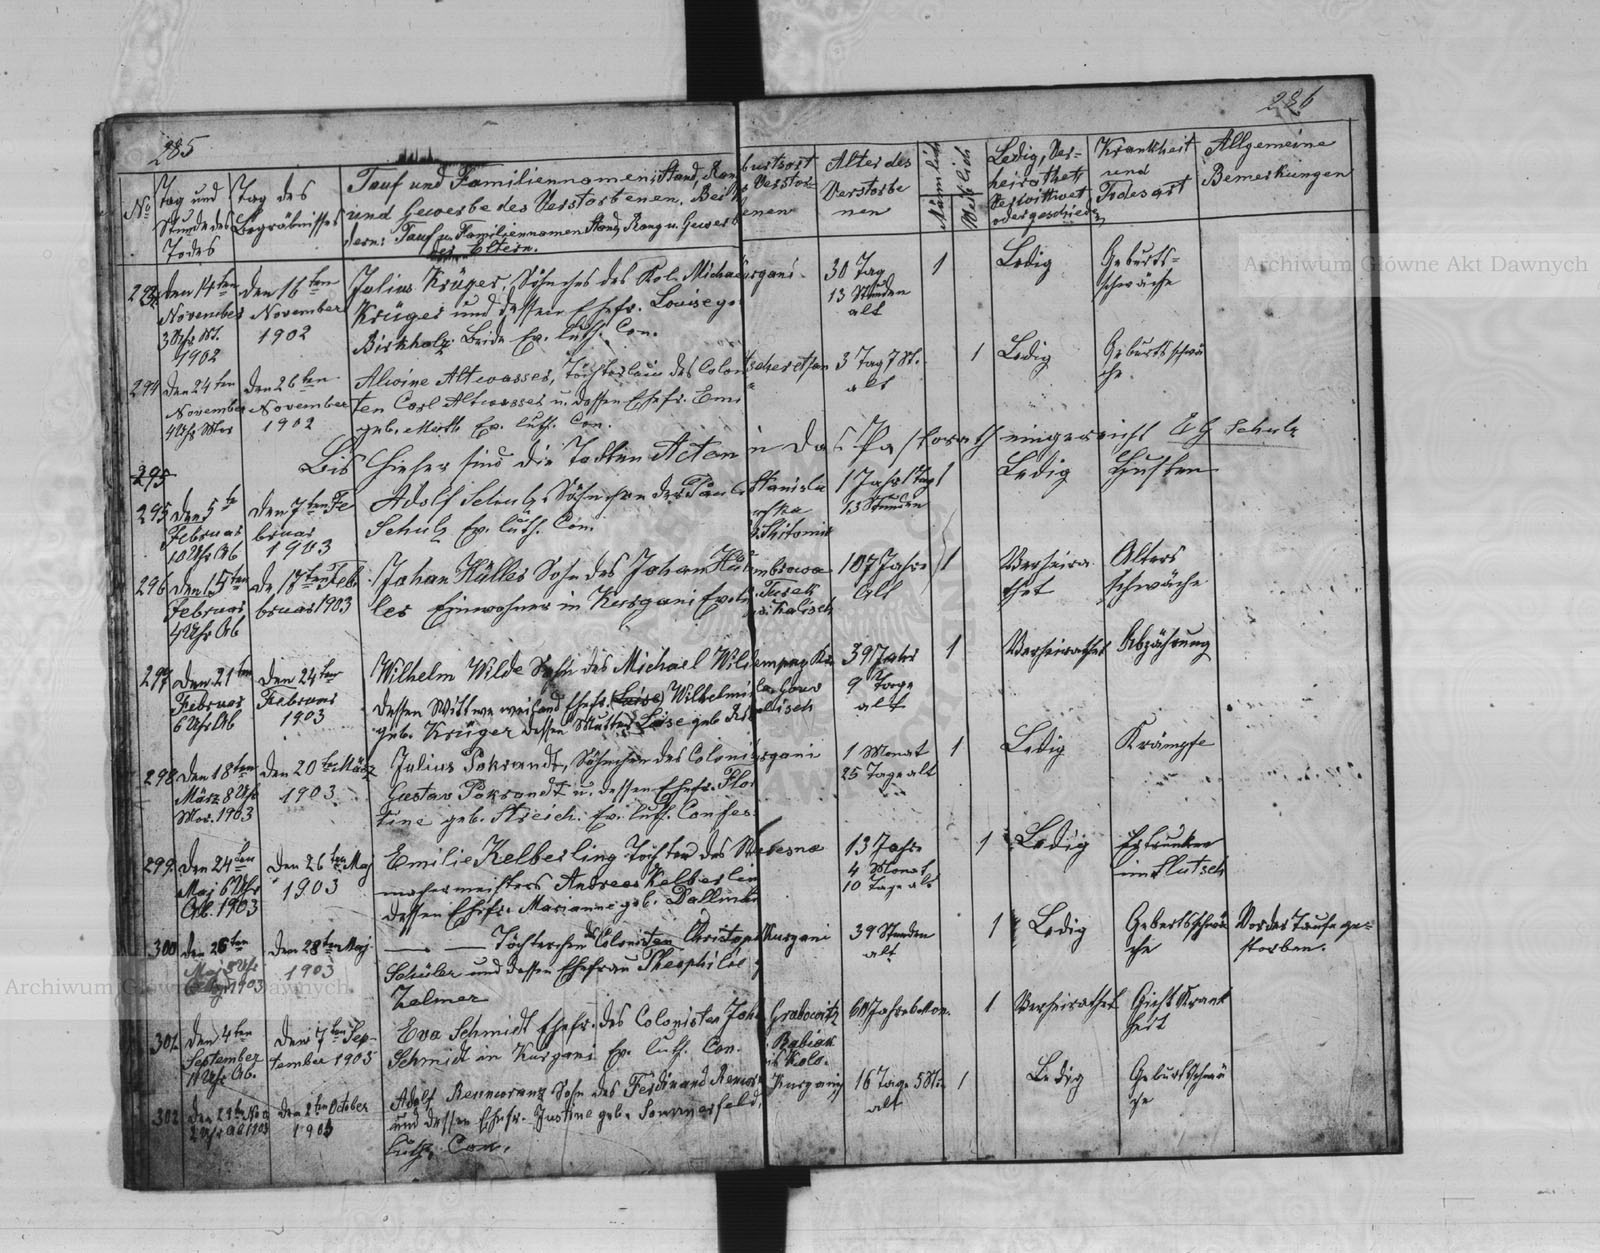 285
286
No
Tag und
Stunde des
Todes
Tag des
Begräbnisses
Tauf und Familiennamen, Stand, Ran
und Gewerbe des Verstorbenen. Bei Ki
dern: Tauf u. Familiennamen Stand, Rang u. Gewerb
der Eltern.
burtsort
Verstor-
enen
Alter des
Verstorbe
nen
Männlich
Weiblich
Ledig, Ver-
heirathet,
Verwittwet
oder geschieden
Krankheit
und
Todesart
Allgemeine
Bemerkungen
293
den 14ten
November
3 Uhr
1902
den 16ten
November
1902
Julius Krüger, Söhnchen des Kol. Michael
Krüger und dessen Ehefr. Louise ge
Birkholz. Beide Ev. luth. Con.
urgani
30 Tag
13 Stunden
alt
1
Ledig
Geburts=
schwäche
294
den 24ten
November
4 Uhr Mor
den 26ten
November
1902
Alwine Altwasser, Töchterlein des Colon
ten Carl Altwasser u. dessen Ehefr. Emi
geb. Ev. luth. Con.
3 Tag 7 St.
alt
1
Ledig
Geburtsschwä
che
295
Bis hieher sind die Todten Acten in das Pastorath eingereicht Schulz
295
den 5te
Februar
10 Uhr Ab
den 7ten Fe
bruar
1903
Adolf Schulz Söhnchen der
Schulz Ev. luth. Con.
Stanisla
wka
Shitomir
1 Jahr 1 Tag
13 Stunden
1
Ledig
Husten
296
den 15ten
Februar
4 Uhr Ab
de 17ten Feb
bruar 1903
Johan Hüller Sohn des Johan Hü
ler Einwohner in Kurgani Ev. lu
mbrowa
Turek
Kalisch
107 Jahre
alt
1
Verheira
thet
Alters
schwäche
297
den 21ten
Februar
6 Uhr Ab
den 24ten
Februar
1903
Wilhelm Wilde Sohn des Michael Wild
dessen Wittwe weiland Ehefr. (Luise) Wilhelmi
geb. Krüger dessen Mutter Luise geb
39 Jahr
9 Tage
alt
1
Verheirathet
Abzährung
298.
den 18ten
März 8 Uhr
Mor. 1903
den 20ten März
1903
Julius Pokrandt, Söhnchen des Coloni
Gustav Pokrandt u. dessen Ehefr. Flor
tine geb. Streich. Ev. luth. Confes.
urgani
1 Monat
25 Tage alt
1
Ledig
Krämpfe
299.
den 24ten
Maj 6 Uhr
Ab. 1903
den 26ten Maj
1903
Emilie Kelberling Tochter des St
machermeisters Andreas Kelberlin
dessen Ehefr. Marianne geb. Dallinki
13 Jahr
4 Monat
10 Tage alt
1
Ledig
Ertrunken
im Slutsch
300
den 26ten
Maj 8 Uhr
1903
den 28ten Maj
1903
— — Töchterchen des Colonisten Christoph
Schüler und dessen Ehefrau Theophilie g
Zelmer
Kurgani
39 Stunden
alt
1
Ledig
Geburtsschwä
che
Vor der Taufe ge-
storben.
301.
den 4ten
September
11 Uhr Ab.
den 7ten Sep-
tember 1903
Eva Schmidt Ehefr. des Colonisten Joh
Schmidt in Kurgani Ev. luth. Con.
Grabowitz
Babiak
Kolo.
60 Jahre 6 Mon.
1
Verheirathet
Gicht Krank
heit
302
1903
den 2ten October
1903
Adolf Sohn des Ferdinand
und dessen Ehefr. Justine geb. Sommerfeld,
luth. Con.
Kurgani
16 Tage 5 Stu
alt
1
Ledig
Geburtsschwä
che
Archiwum Główne Akt Dawnych
Archiwum Główne Akt Dawnych